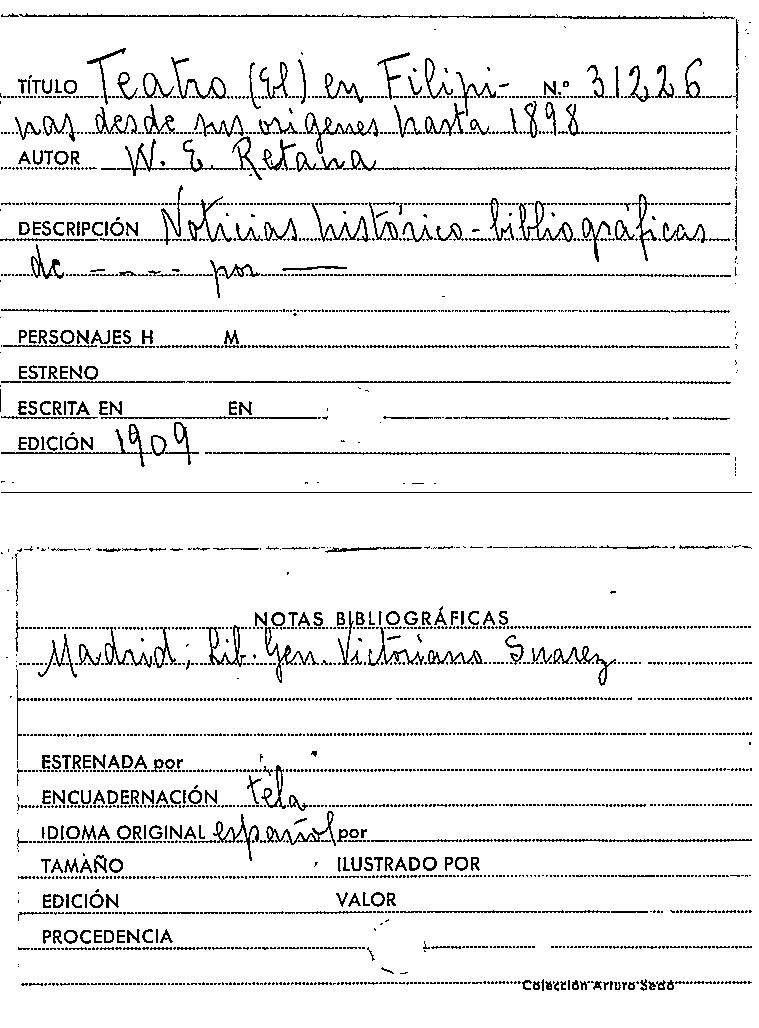 TÍTULO Teatro (El) en Filipi- N.º 31226
nas desde sus origenes hasta 1898
AUTOR W. E. Retana
DESCRIPCIÓN Noticias histórico-bibliográficas
de ---- por —
PERSONAJES H M
ESTRENO
ESCRITA EN EN
EDICIÓN 1909
NOTAS BIBLIOGRÁFICAS
Madrid; Lib. Gen. Victoriano Suarez
ESTRENADA por
ENCUADERNACIÓN tela
IDIOMA ORIGINAL español por
TAMAÑO ILUSTRADO POR
EDICIÓN VALOR
PROCEDENCIA
Colección Arturo Sedó